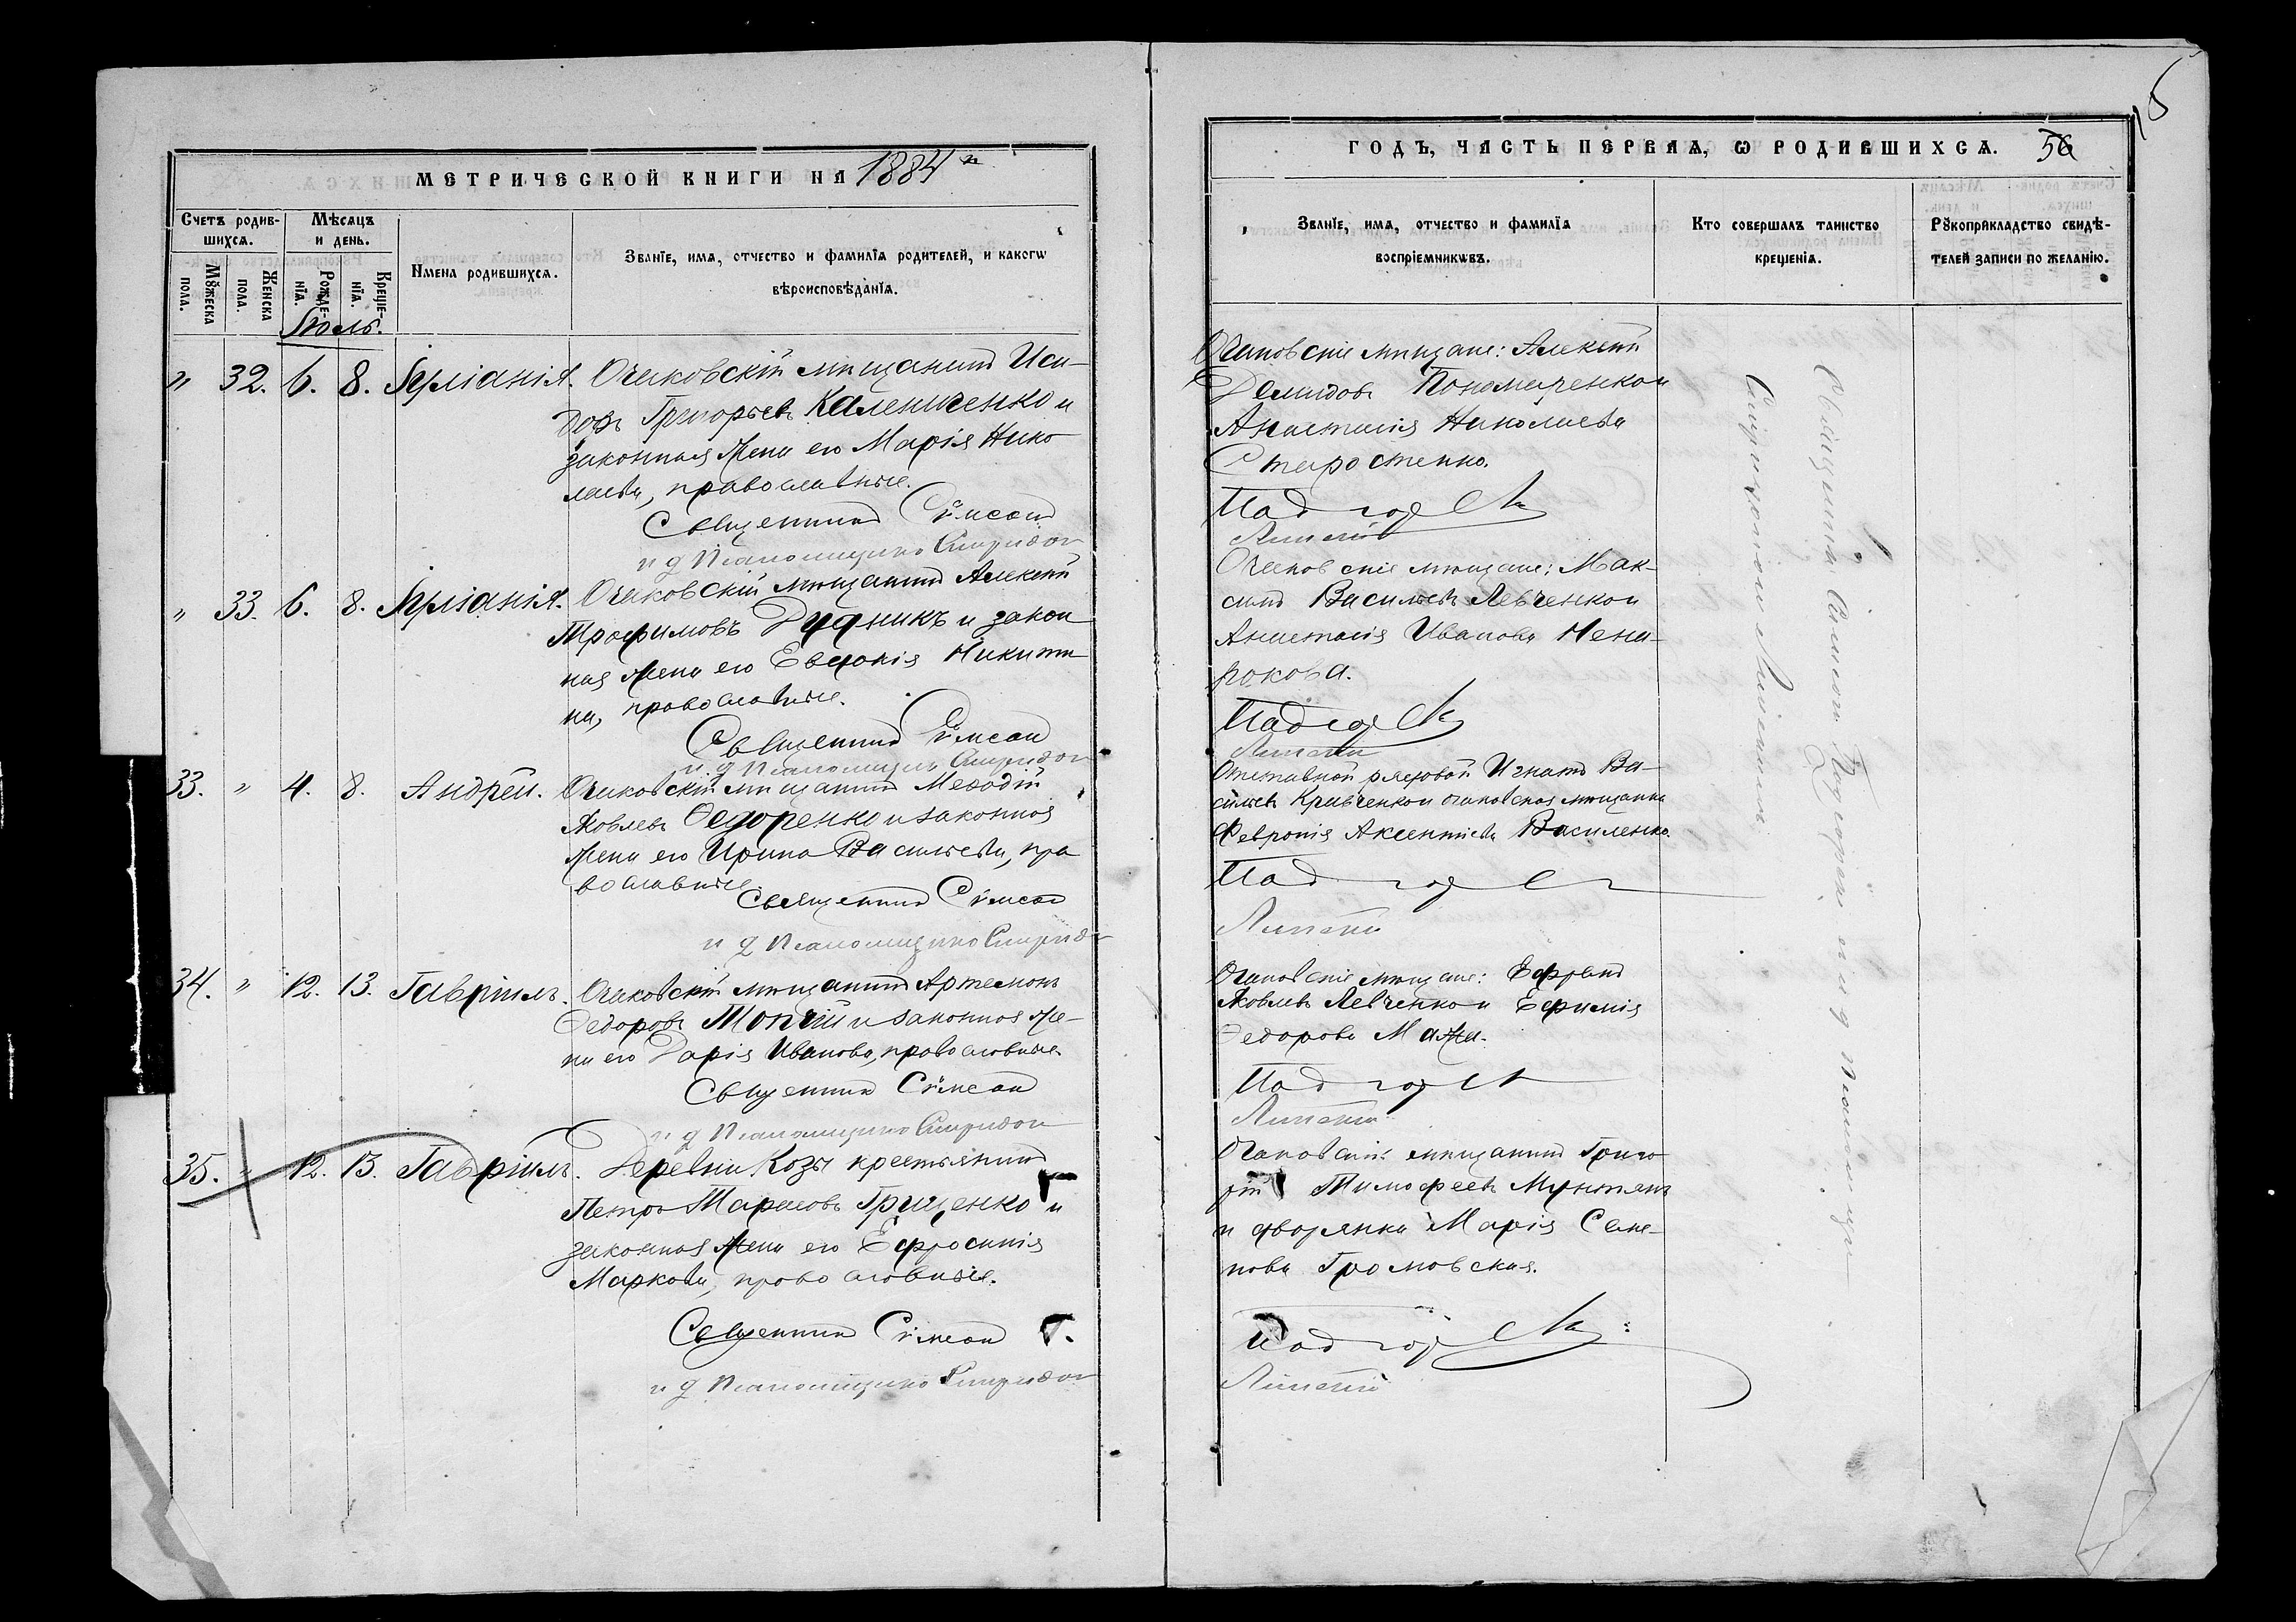 МЕТРИЧЕСКОЙ КНИГИ НА 1884 й
Счетъ родив-
шихсѧ.
Мѣсѧцъ
и день.
Мꙋжеска
пола.
Женска
пола.
Рожде-
нїѧ.
Креще-
нїѧ.
Имена родившихсѧ.
Званїе, имѧ, отчество и фамилїѧ родителей, и какогѡ
вѣроисповѣданїѧ.
Іюль.
" 32. 6. 8. Іуліанія. Очаковскій мѣщанинъ Иси-
доръ Григорьевъ Калениченко и
законная жена его Марія Нико
лаева, православные.
Священникъ Сѵмеон
и д псаломщика Спиридон
" 33. 6. 8. Іуліанія. Очаковскій мѣщанинъ Алексѣй
Трофимовъ Рудникъ и закон
ная жена его Евдокія Никити
на, православные.
Священникъ Сѵмеон
и д псаломщика Спиридон
33. " 4. 8. Андрей. Очаковскій мѣщанинъ Меѳодій
Яковлевъ Ѳедоренко и законная
жена его Ирина Васильева, пра
вославные.
Священникъ Сѵмеон
и д псаломщика Спиридон
34. " 12. 13. Гавріилъ. Очаковскій мѣщанинъ Артемонъ
Ѳедоровъ Топчій и законная же-
на его Дарія Иванова, православные.
Священник Сѵмеон
и д псаломщика Спиридон
35. " 12. 13. Гавріилъ. Деревни Козы крестьянинъ
Петръ Тарасовъ Грищенко и
законная жена его Ефросинія
Маркова, православные.
Священник Сѵмеон
и д псаломщика Спиридон
ГОДЪ, ЧАСТЬ ПЕРВАѦ, Ѡ РОДИВШИХСѦ. 56
Званїе, имѧ, отчество и фамилїѧ
воспрїемникѡвъ.
Кто совершалъ таинство
крещенїѧ.
Рꙋкоприкладство свидѣ-
телей записи по желанїю.
Очаковскіе мѣщане: Алексѣй
Демидовъ Пономаренко и
Анастасія Николаева
Старостенко.
Подгор
Липскій
Очаковскіе мѣщане: Мак-
симъ Васильевъ Левченко и
Анастасія Иванова Нена-
рокова.
Подгор
Отставной рядовой Игнатъ Ва-
сильевъ Кравченко и очаковская мѣщанка
Февронія Аксентіева Василенко.
Подгор
Очаковскіе мѣщане: Ефремъ
Яковлевъ Левченко и Ефимія
Ѳедорова
Подгор
Очаковскій мѣщанинъ Григо
рій Тимофеевъ Мунтянъ
и дворянка Марія Семе-
нова Громовская.
Подгор
Священникъ Симеонъ и и д псаломщика
Спиридонъ